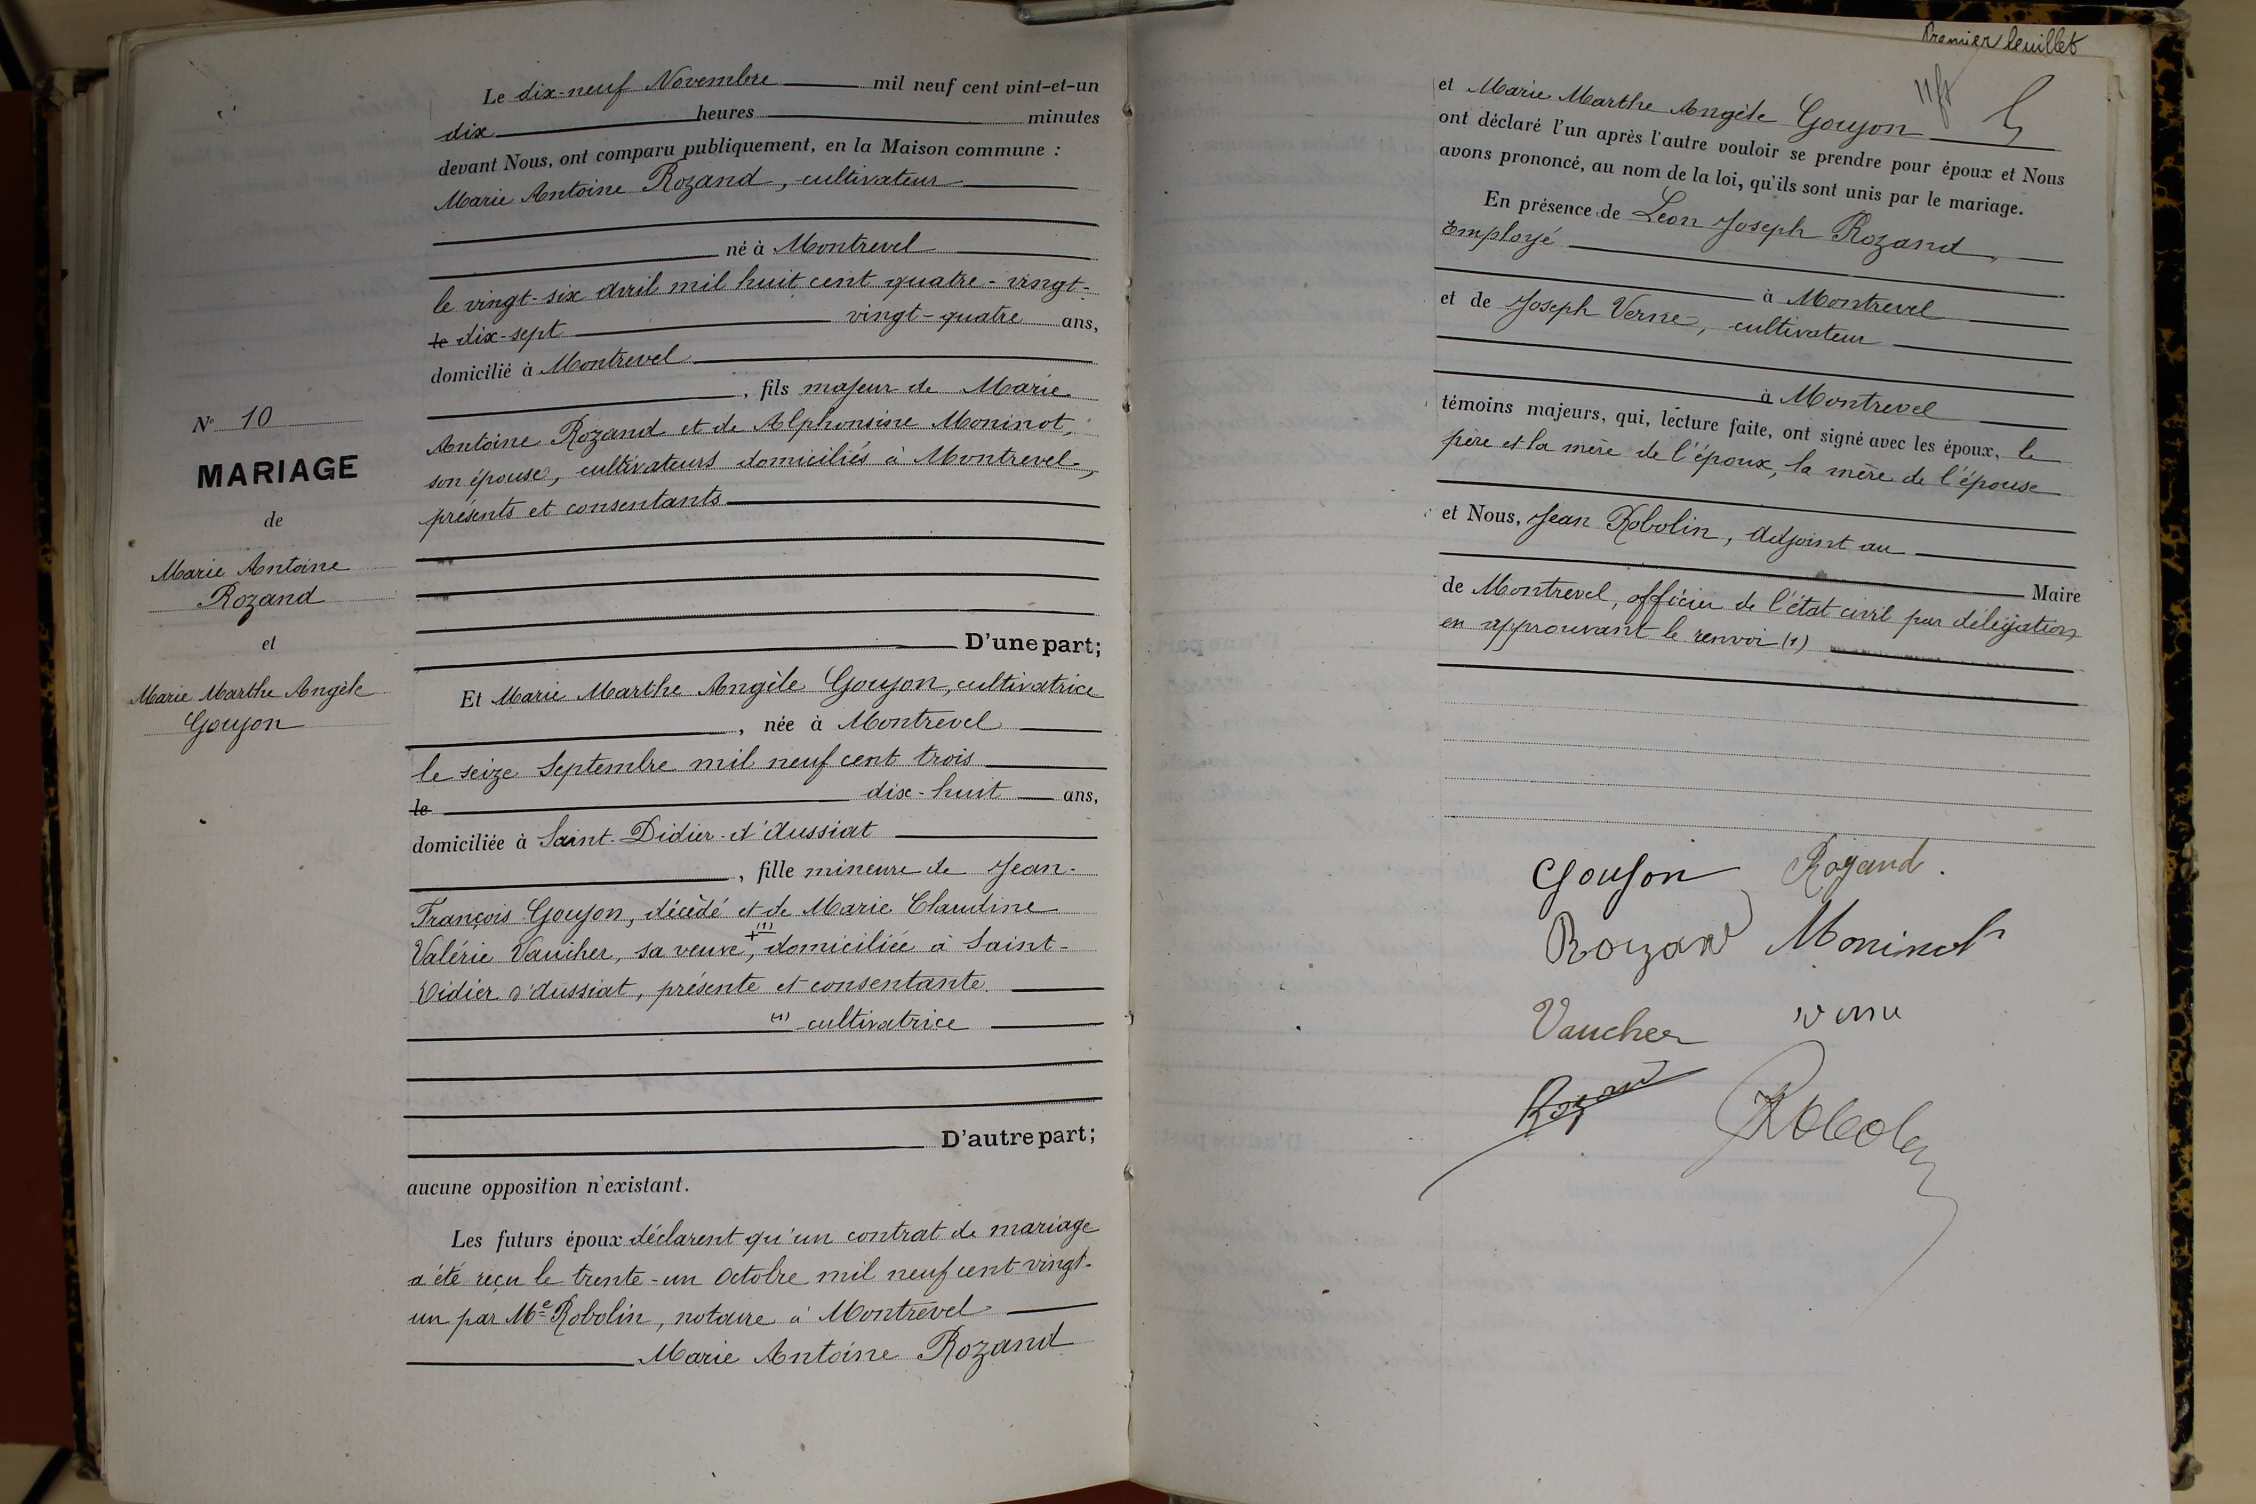 Le dix-neuf Novembre mil neuf cent vint-et-un
dix heures minutes
devant Nous, ont comparu publiquement, en la Maison commune :
Marie Antoine Rozand, cultivateur
né à Montrevel
le vingt-six avril mil huit cent quatre-vingt-
le dix-sept vingt-quatre ans,
domicilié à Montrevel
, fils majeur de Marie
Antoine Rozand et de Alphonsine Moninot,
son épouse, cultivateurs domiciliés à Montrevel,
présents et consentants
D'une part;
N° 10
MARIAGE
de
Marie Antoine
Rozand
et
Marie Marthe Angèle
Goujon
Et Marie Marthe Angèle Goujon, cultivatrice
, née à Montrevel
le seize Septembre mil neuf cent trois
le dix-huit ans,
domiciliée à Saint-Didier-d'Aussiat
, fille mineure de Jean-
François Goujon, décédé et de Marie Claudine
Valérie Vaucher, sa veuve, + (1) domiciliée à Saint-
Didier d'Aussiat, présente et consentante.
(1) cultivatrice
D'autre part;
aucune opposition n'existant.
Les futurs époux déclarent qu'un contrat de mariage
a été reçu le trente-un Octobre mil neuf cent vingt-
un par Me Robolin, notaire à Montrevel
Marie Antoine Rozand
Premier feuillet
et Marie Marthe Angèle Goujon
ont déclaré l'un après l'autre vouloir se prendre pour époux et Nous
avons prononcé, au nom de la loi, qu'ils sont unis par le mariage.
En présence de Léon Joseph Rozand,
Employé
à Montrevel
et de Joseph Verne, cultivateur
à Montrevel
témoins majeurs, qui, lecture faite, ont signé avec les époux, le
père et la mère de l'époux, la mère de l'épouse
et Nous, Jean Robolin, adjoint au
Maire
de Montrevel, officier de l'état civil par délégation
en approuvant le renvoi (1)
Goujon Rozand.
Rozand Moninot
Vaucher Verne
Rozand Robolin